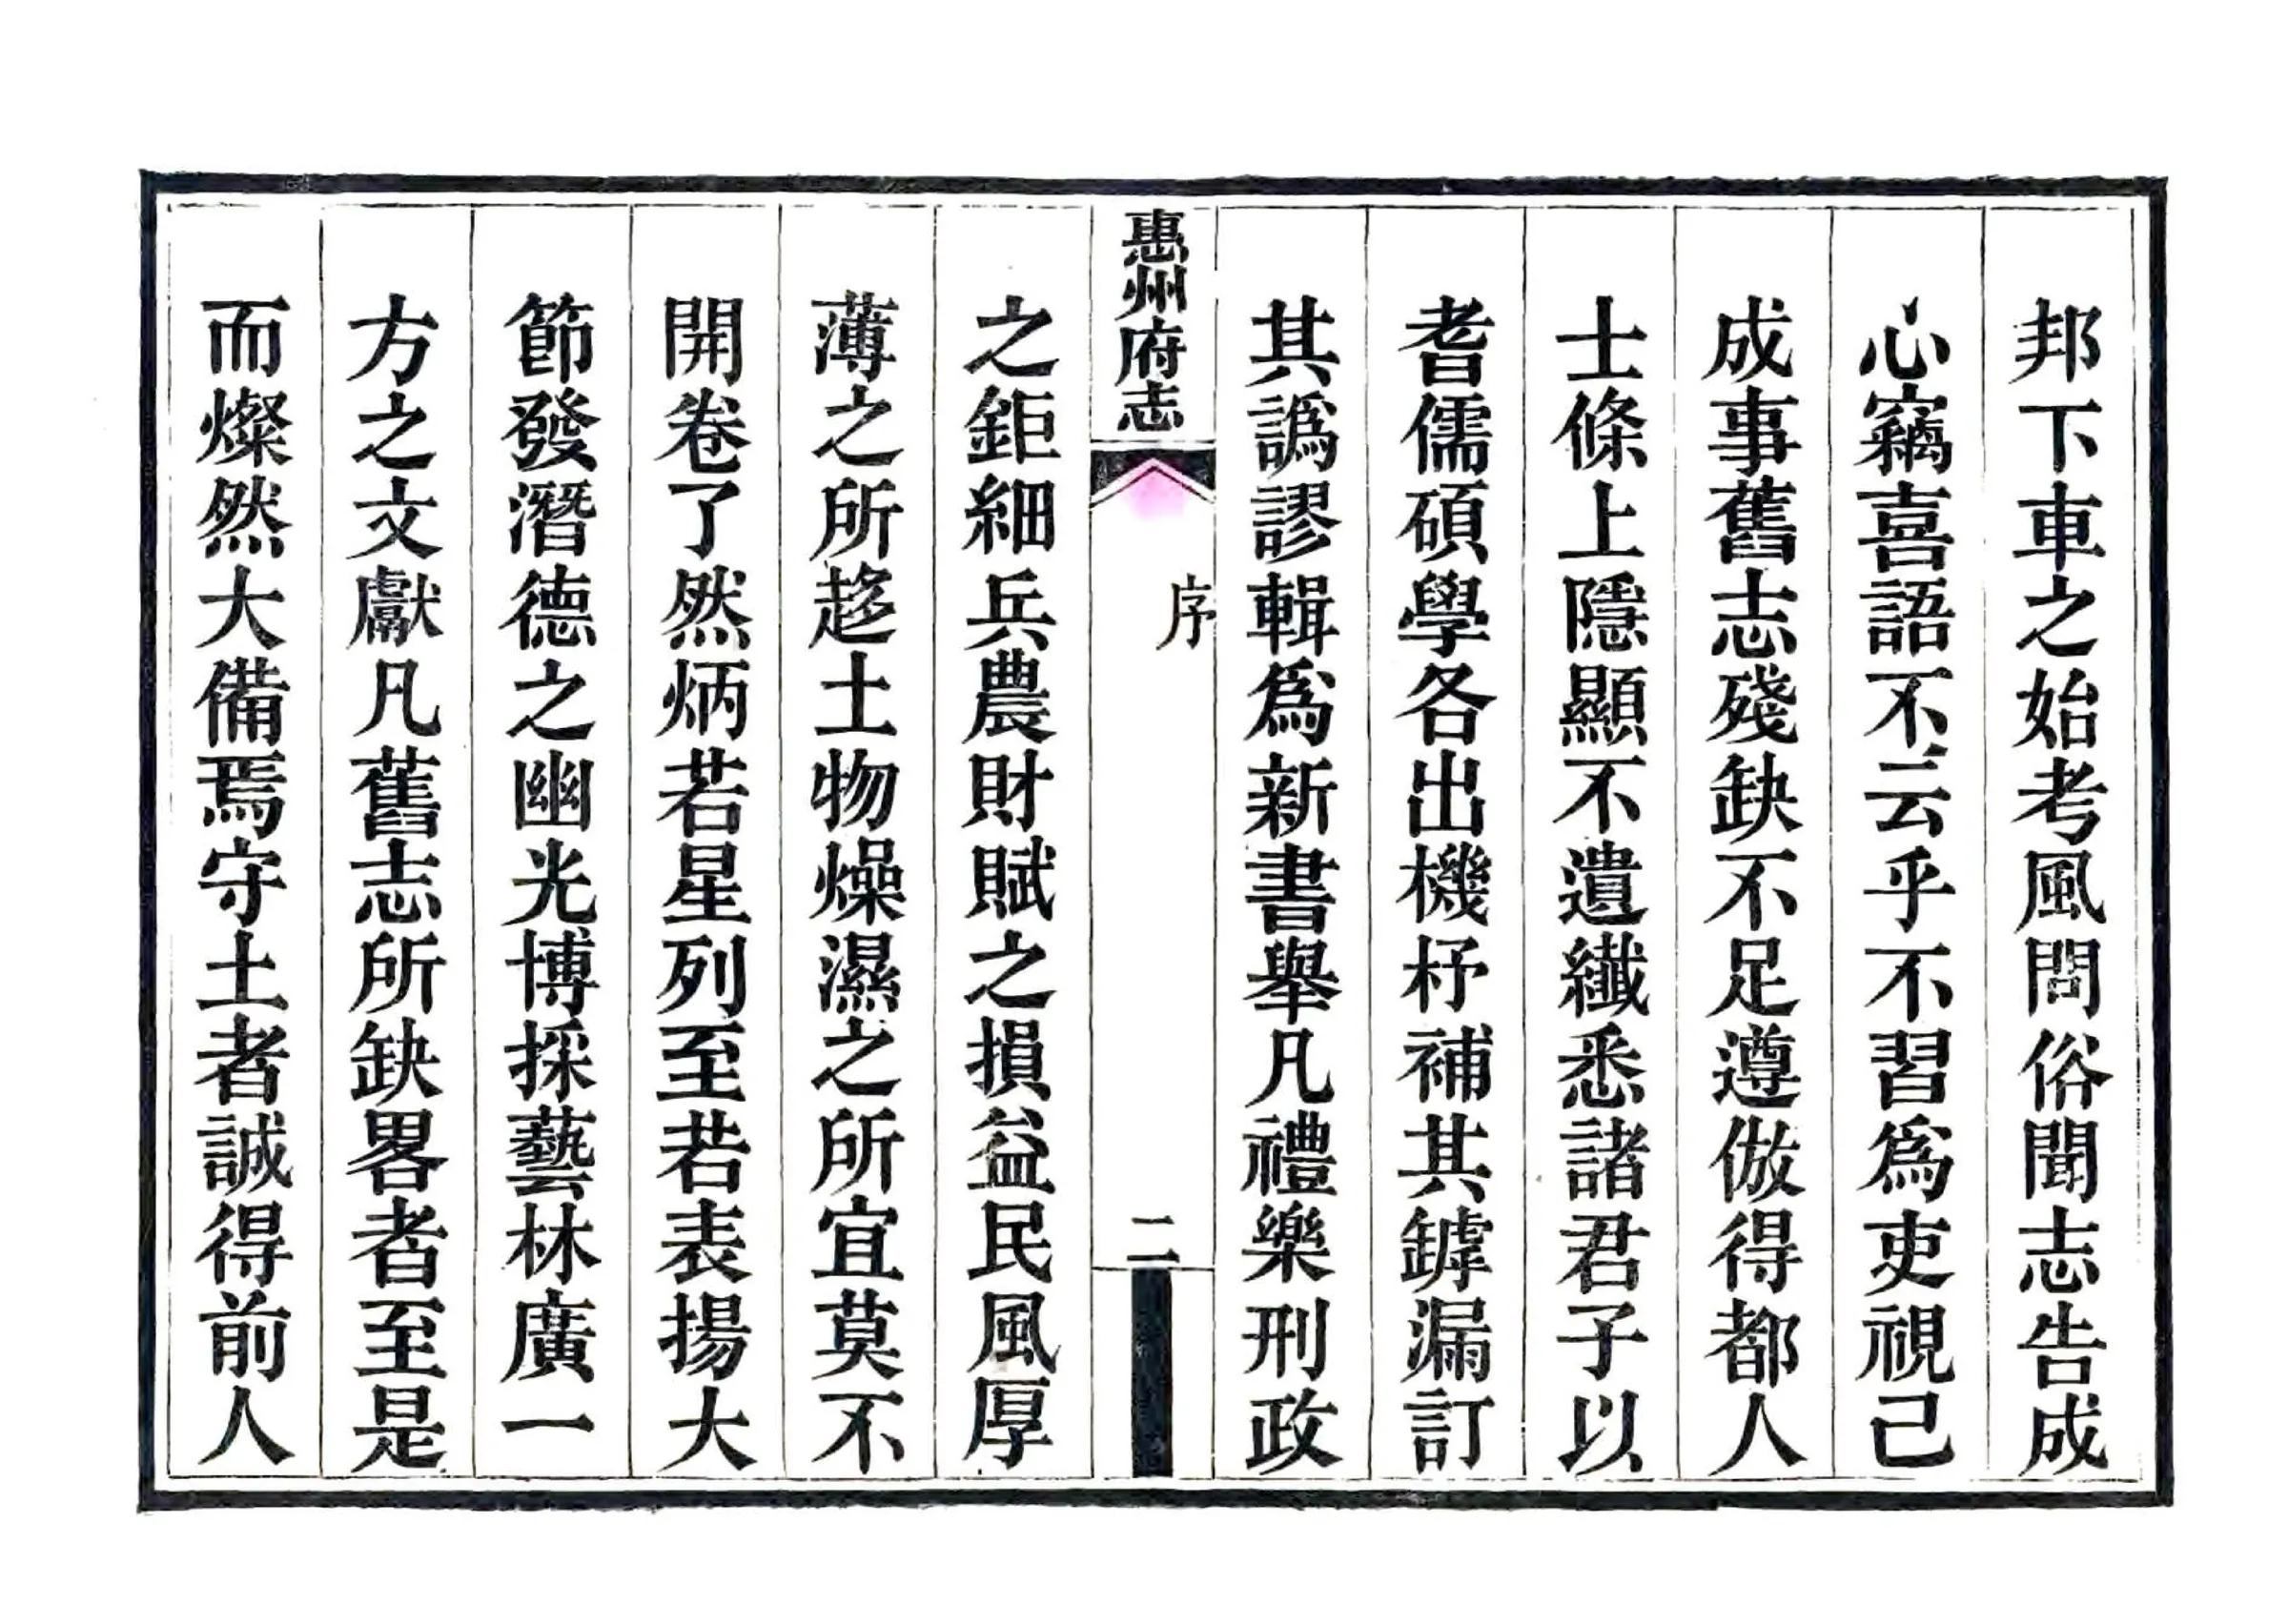 邦下車之始考風問俗聞志告成
心竊喜語不云乎不習爲吏視己
成事舊志殘缺不足遵倣得都人
士條上隱顯不遺纖悉諸君子以
耆儒碩學各出機杼補其罅漏訂
其譌謬輯爲新書舉凡禮樂刑政
惠州府志
序
二
之鉅細兵農財賦之損益民風厚
薄之所趍土物燥濕之所宜莫不
開卷了然炳若星列至若表揚大
節發潛德之幽光博採藝林廣一
方之文獻凡舊志所缺畧者至是
而燦然大備焉守土者誠得前人